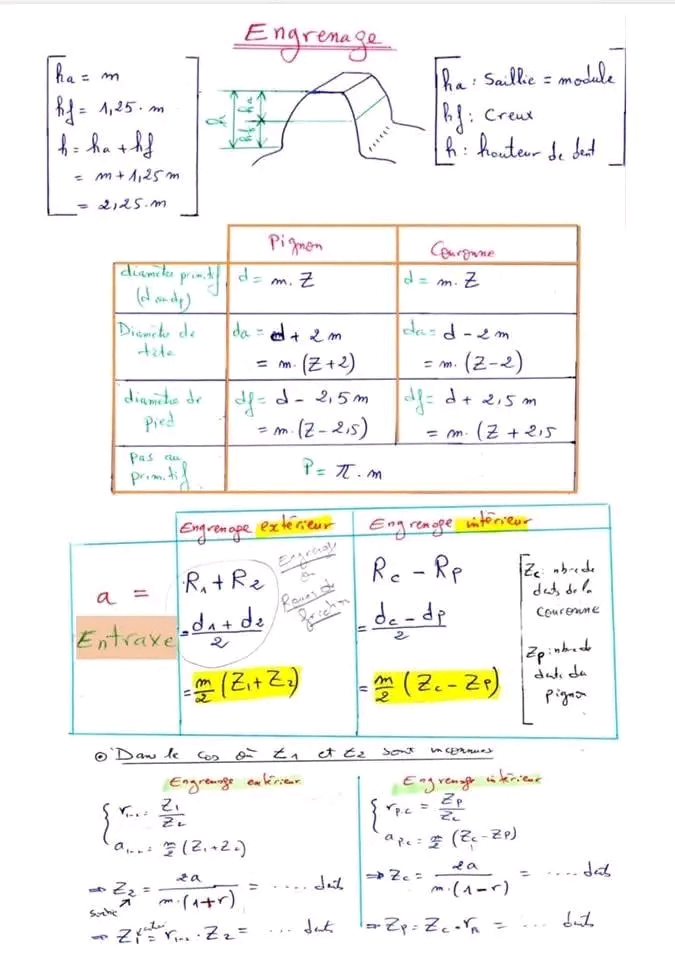 Engrenage
ha = m
hf = 1,25 . m
h = ha + hf
= m + 1,25 m
= 2,25 . m
h
ha
hf
ha : Saillie = module
hf : Creux
h : houteur de dent
Pignon
Couronne
diamètre primitif
(d ou dp)
d = m. Z
d = m. Z
Diamètre de
tête
da = d + 2 m
= m. (Z+2)
da = d - 2 m
= m. (Z-2)
diamètre de
pied
df = d - 2,5 m
= m. (Z - 2,5)
df = d + 2,5 m
= m. (Z + 2,5
pas au
primitif
P = π . m
Engrenage extérieur
Engrenage intérieur
a =
Entraxe
R1 + R2
= d1 + d2 / 2
= m/2 (Z1 + Z2)
Engrenage
Roues de
friction
Rc - Rp
= dc - dp / 2
= m/2 (Zc - Zp)
Zc : nbre de
dents de la
couronne
Zp : nbre de
dents du
pignon
Dans le cas où Z1 et Z2 sont inconnues
Engrenage extérieur
r1-2 = Z1/Z2
a1-2 = m/2 (Z1 + Z2)
⇒ Z2 = 2a / m.(1+r) = ..... dents
sortie
⇒ Z1 = r1-2 . Z2 = ... dents
Engrenage intérieur
rp.c = Zp/Zc
ap.c = m/2 (Zc - Zp)
⇒ Zc = 2a / m.(1-r) = ..... dents
⇒ Zp = Zc . r = .... dents